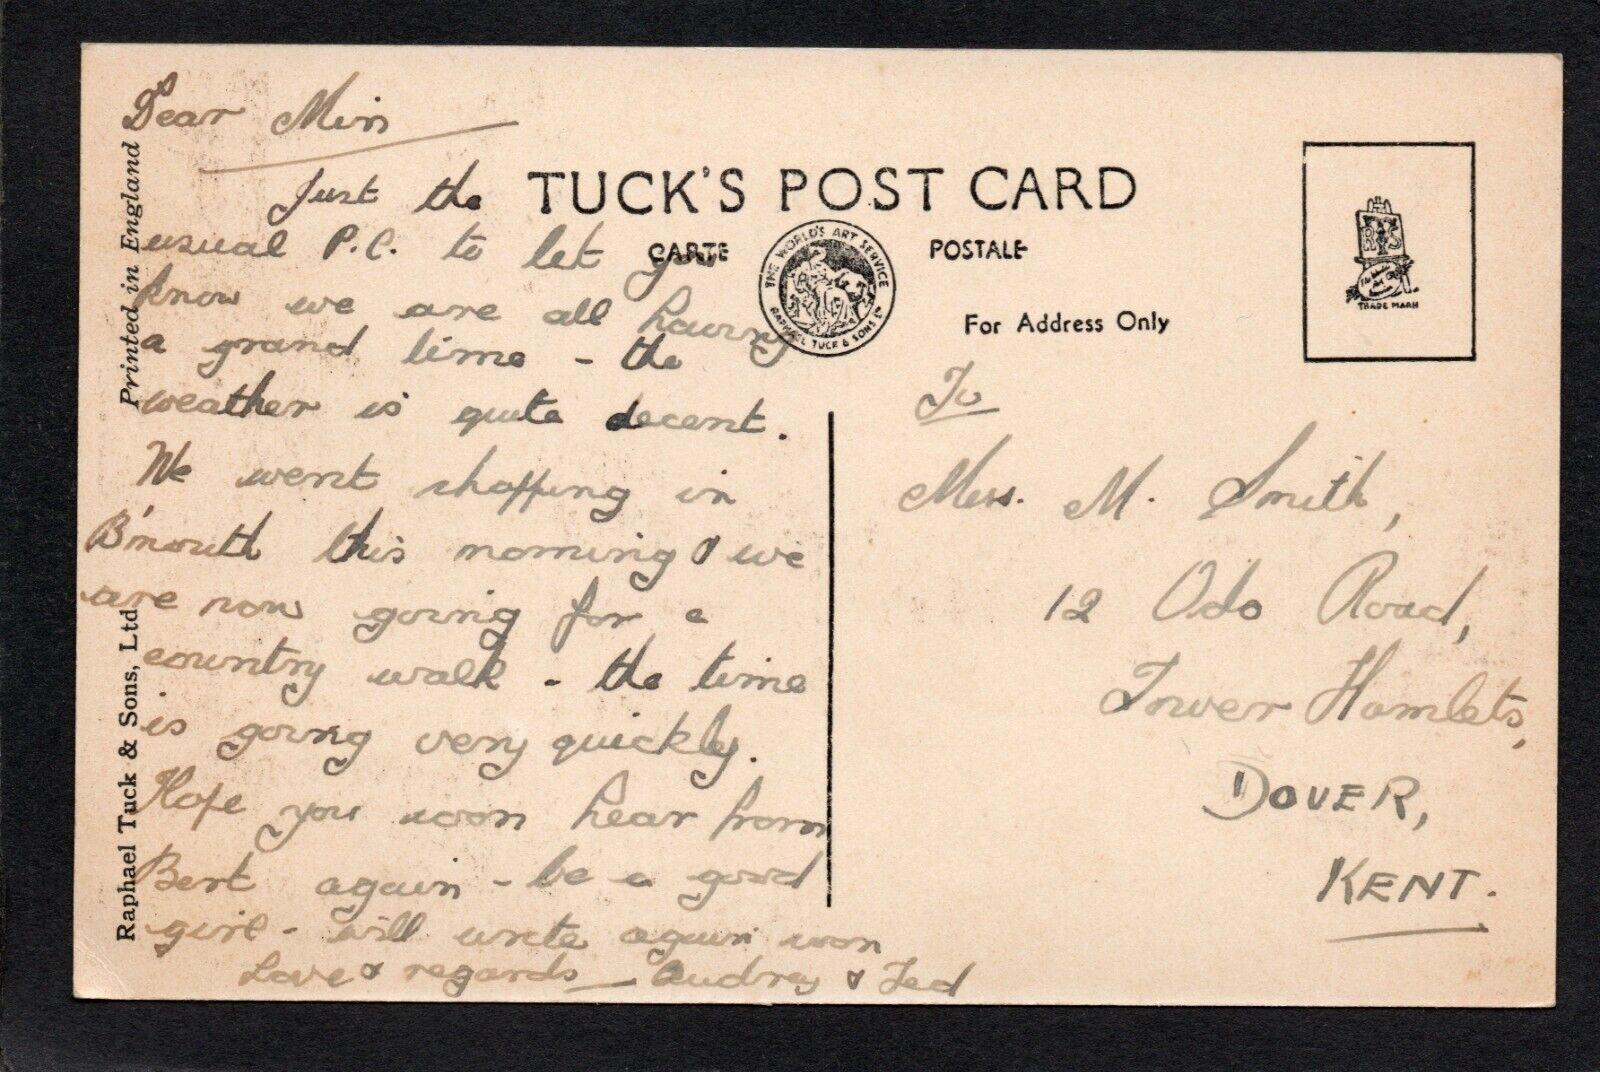 Dear Min
Just the
usual P.C. to let you
know we are all having
a grand time - the
weather is quite decent.
We went shopping in
B'mouth this morning & we
are now going for a
country walk - the time
is going very quickly.
Hope you soon hear from
Bert again - be a good
girl - will write again soon
Love & regards - Audrey & Ted
TUCK'S POST CARD
CARTE POSTALE
THE WORLD'S ART SERVICE
RAPHAEL TUCK & SONS LTD
For Address Only
To
M. Smith,
12 Odo Road,
Tower Hamlets,
DOVER,
KENT.
R S
TRADE MARK
Printed in England
Raphael Tuck & Sons, Ltd